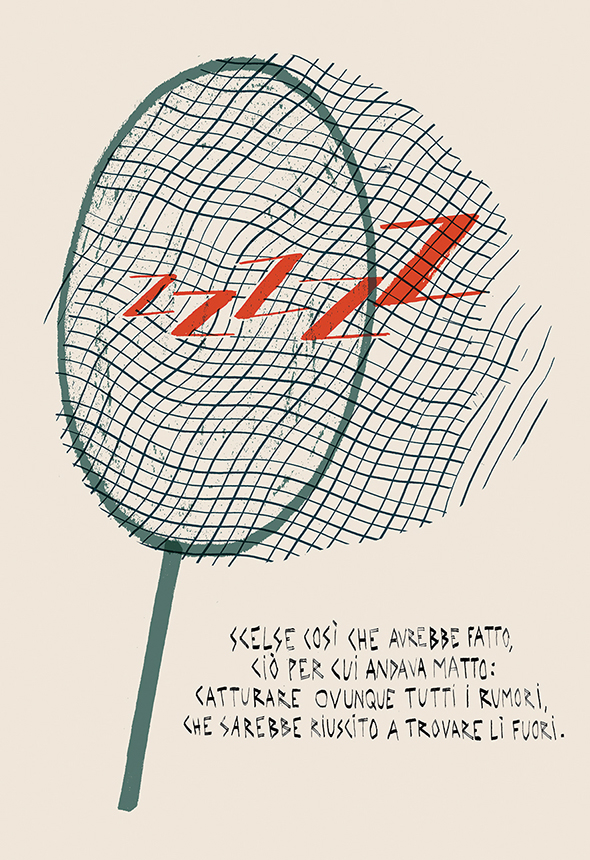 ZZZZZ
SCELSE COSÌ CHE AVREBBE FATTO,
CIÒ PER CUI ANDAVA MATTO:
CATTURARE OVUNQUE TUTTI I RUMORI,
CHE SAREBBE RIUSCITO A TROVARE LÌ FUORI.